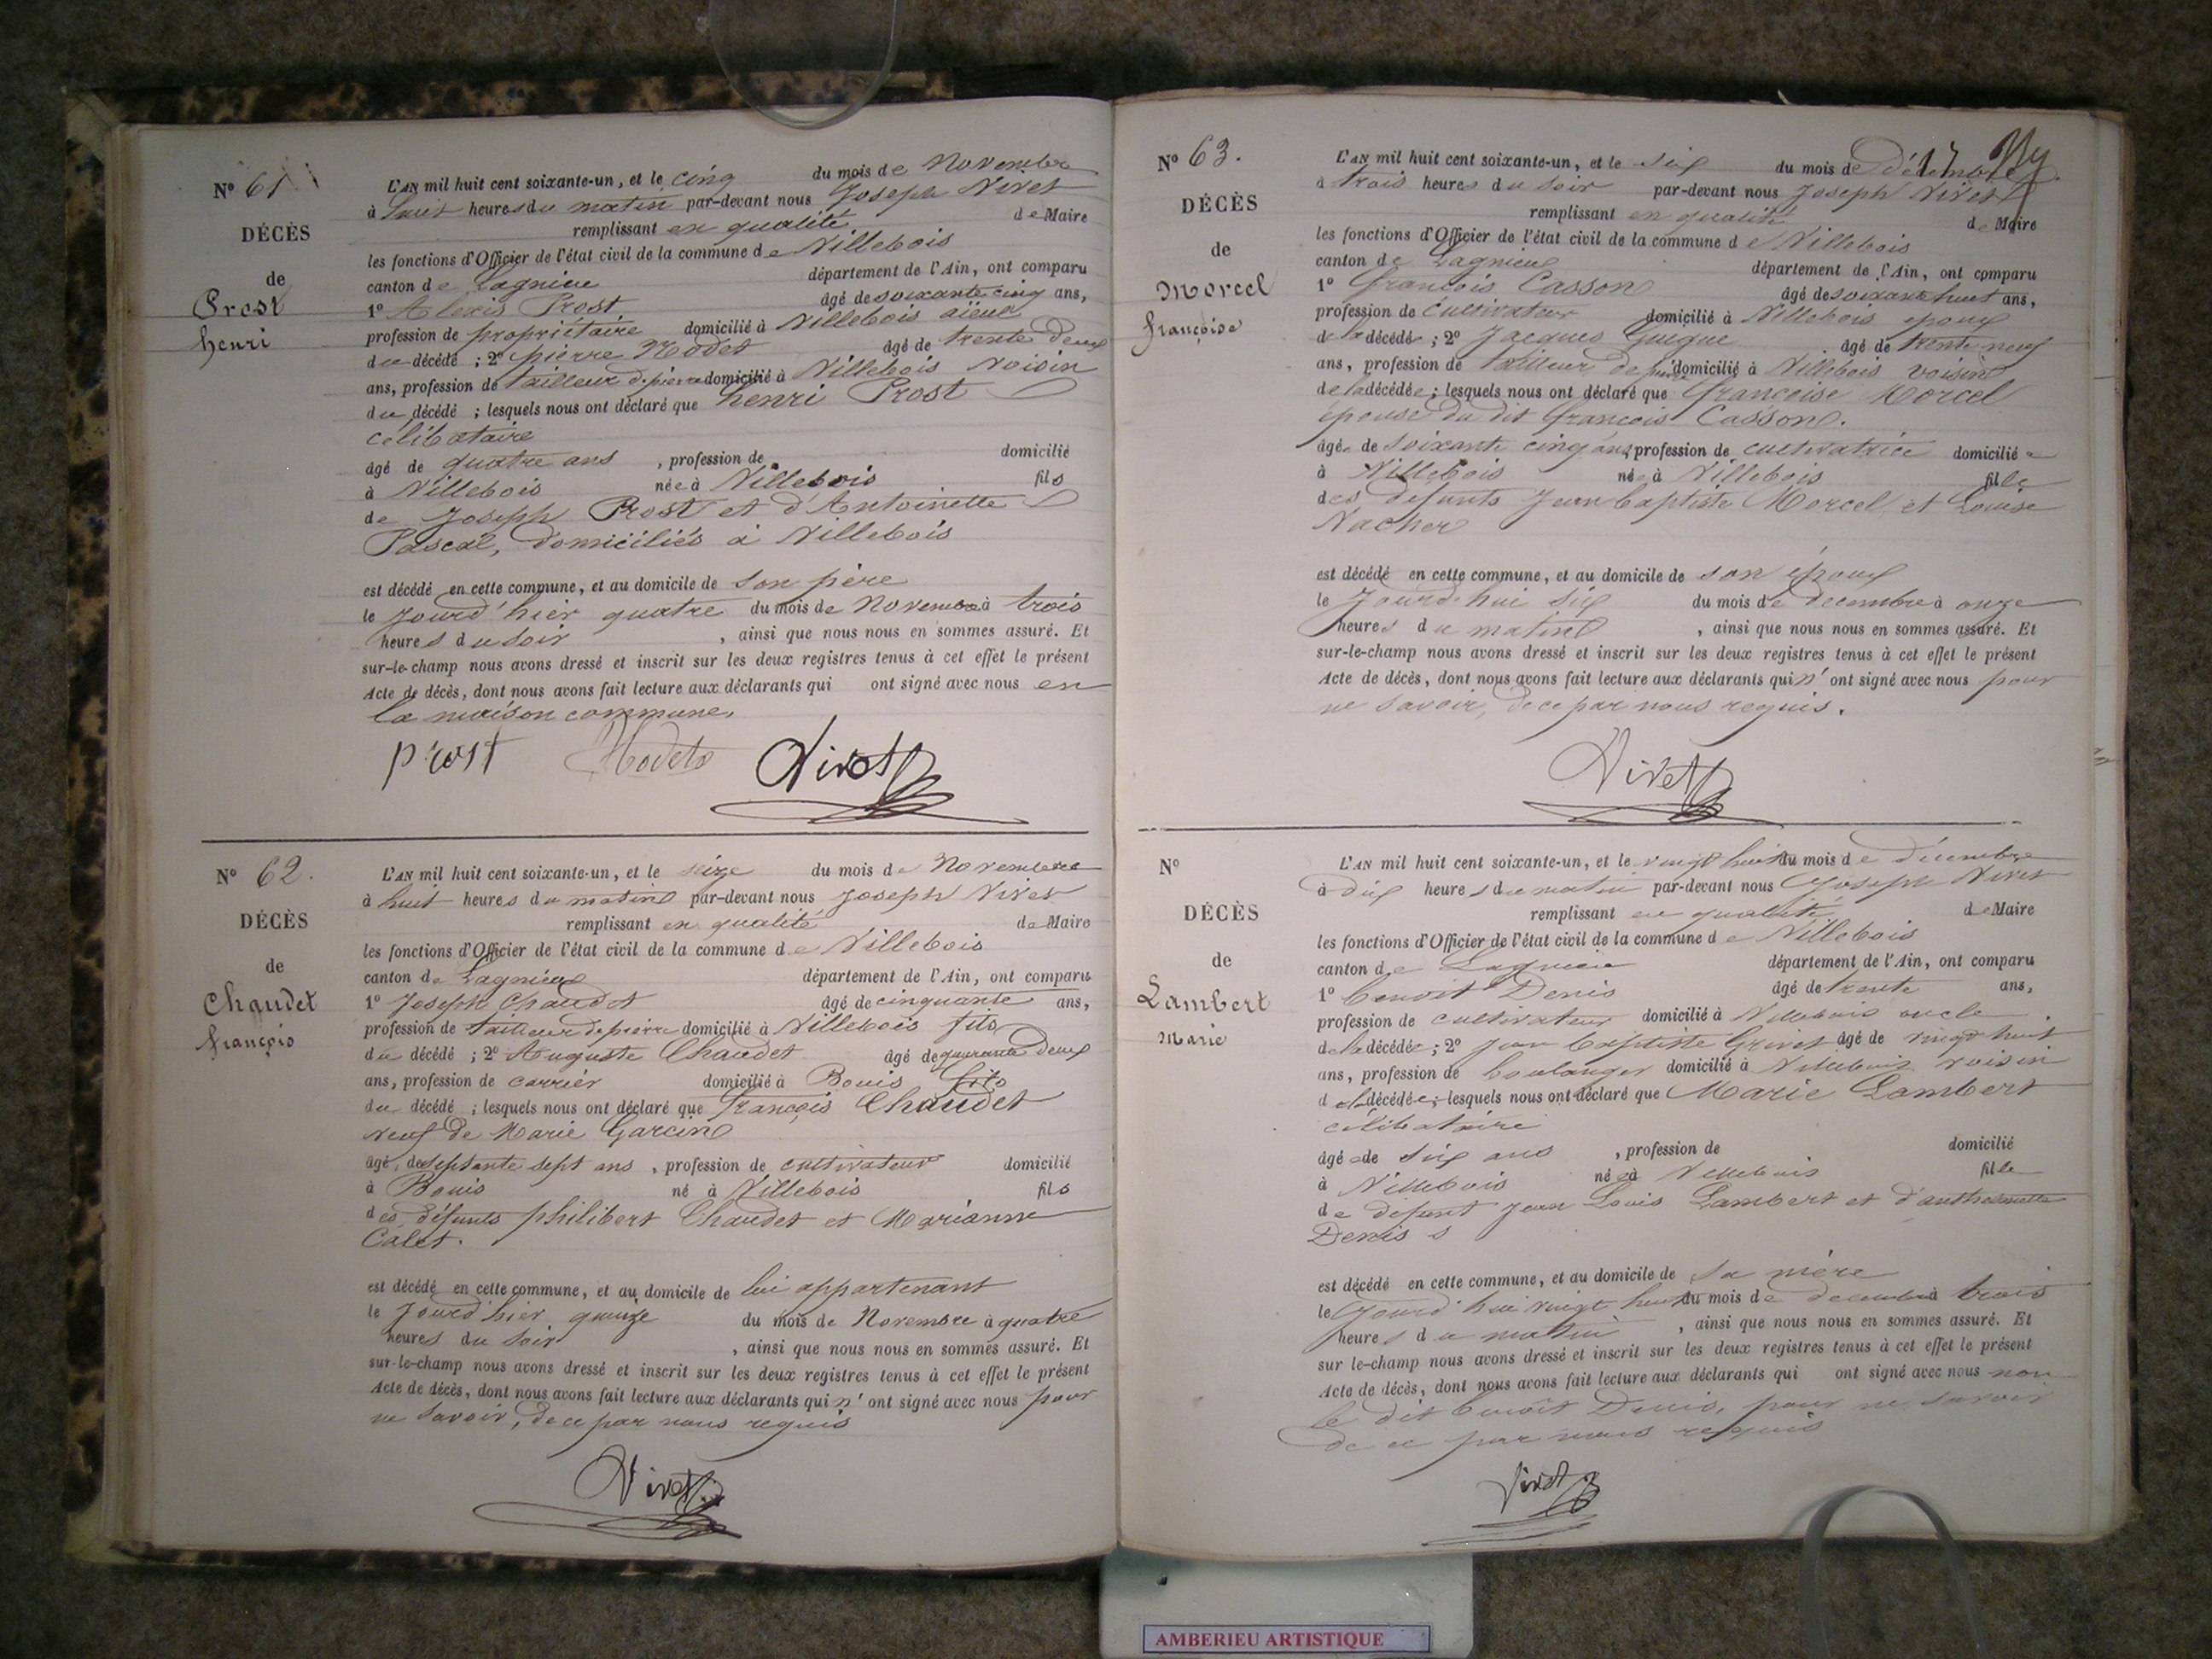 N° 61
DÉCÈS
de
Prost
henri
L'AN mil huit cent soixante-un, et le cinq du mois de Novembre
à huit heures du matin par-devant nous Joseph Vivet
remplissant en qualité de Maire
les fonctions d'Officier de l'état civil de la commune de Villebois
canton de Lagnieu département de l'Ain, ont comparu
1° Alexis Prost âgé de soixante cinq ans,
profession de propriétaire domicilié à Villebois aïeul
du décédé ; 2° pierre Modet âgé de trente deux
ans, profession de tailleur de pierre domicilié à Villebois voisin
du décédé ; lesquels nous ont déclaré que henri Prost
célibataire
âgé de quatre ans , profession de domicilié
à Villebois née à Villebois fils
de Joseph Prost et d'Antoinette
Pascal, domiciliés à Villebois
est décédé en cette commune, et au domicile de son père
le jourd'hier quatre du mois de Novembre à trois
heures du soir , ainsi que nous nous en sommes assuré. Et
sur-le-champ nous avons dressé et inscrit sur les deux registres tenus à cet effet le présent
Acte de décès, dont nous avons fait lecture aux déclarants qui ont signé avec nous en
la maison commune.
prost Modets Vivet
N° 62.
DÉCÈS
de
Chaudet
françois
L'AN mil huit cent soixante-un, et le seize du mois de Novembre
à huit heures du matin par-devant nous Joseph Vivet
remplissant en qualité de Maire
les fonctions d'Officier de l'état civil de la commune de Villebois
canton de Lagnieu département de l'Ain, ont comparu
1° Joseph Chaudet âgé de cinquante ans,
profession de tailleur de pierre domicilié à Villebois fils
du décédé ; 2° Auguste Chaudet âgé de quarante deux
ans, profession de carrier domicilié à Bouis fils
du décédé ; lesquels nous ont déclaré que françois Chaudet
veuf de Marie Garcin
âgé de septante sept ans , profession de cultivateur domicilié
à Bouis né à Villebois fils
des défunts philibert Chaudet et Marianne
Calet.
est décédé en cette commune, et au domicile de lui appartenant
le jourd'hier quinze du mois de Novembre à quatre
heures du soir , ainsi que nous nous en sommes assuré. Et
sur-le-champ nous avons dressé et inscrit sur les deux registres tenus à cet effet le présent
Acte de décès, dont nous avons fait lecture aux déclarants qui n'ont signé avec nous pour
ne savoir, de ce par nous requis
Vivet
N° 63.
DÉCÈS
de
Morcel
françoise
17
L'AN mil huit cent soixante-un, et le six du mois de décembre
à trois heures du soir par-devant nous Joseph Vivet
remplissant en qualité de Maire
les fonctions d'Officier de l'état civil de la commune de Villebois
canton de Lagnieu département de l'Ain, ont comparu
1° françois Casson âgé de soixante huit ans,
profession de cultivateur domicilié à Villebois époux
de la décédée ; 2° Jacques Guigue âgé de trente neuf
ans, profession de tailleur de pierre domicilié à Villebois voisin
de la décédée ; lesquels nous ont déclaré que françoise Morcel
épouse du dit françois Casson.
âgée de soixante cinq ans, profession de cultivatrice domiciliée
à Villebois née à Villebois fille
des défunts Jean baptiste Morcel et Louise
Vacher
est décédé en cette commune, et au domicile de son époux
le Jourd'hui six du mois de décembre à onze
heures du matin , ainsi que nous nous en sommes assuré. Et
sur-le-champ nous avons dressé et inscrit sur les deux registres tenus à cet effet le présent
Acte de décès, dont nous avons fait lecture aux déclarants qui n'ont signé avec nous pour
ne savoir, de ce par nous requis.
Vivet
N°
DÉCÈS
de
Lambert
Marie
L'AN mil huit cent soixante-un, et le vingt huit du mois de décembre
à dix heures du matin par-devant nous Joseph Vivet
remplissant en qualité de Maire
les fonctions d'Officier de l'état civil de la commune de Villebois
canton de Lagnieu département de l'Ain, ont comparu
1° benoit Denis âgé de trente ans,
profession de cultivateur domicilié à Villebois oncle
de la décédée ; 2° Jean baptiste Grivet âgé de vingt huit
ans, profession de boulanger domicilié à Villebois voisin
de la décédée ; lesquels nous ont déclaré que Marie Lambert
célibataire
âgée de six ans , profession de domicilié
à Villebois née à Villebois fille
de défunt Jean Louis Lambert et d'anthelmette
Denis
est décédé en cette commune, et au domicile de sa mère
le Jourd'hui vingt huit du mois de décembre à trois
heures du matin , ainsi que nous nous en sommes assuré. Et
sur le-champ nous avons dressé et inscrit sur les deux registres tenus à cet effet le présent
Acte de décès, dont nous avons fait lecture aux déclarants qui ont signé avec nous non
le dit benoit Denis, pour ne savoir
de ce par nous requis
Vivet
AMBERIEU ARTISTIQUE